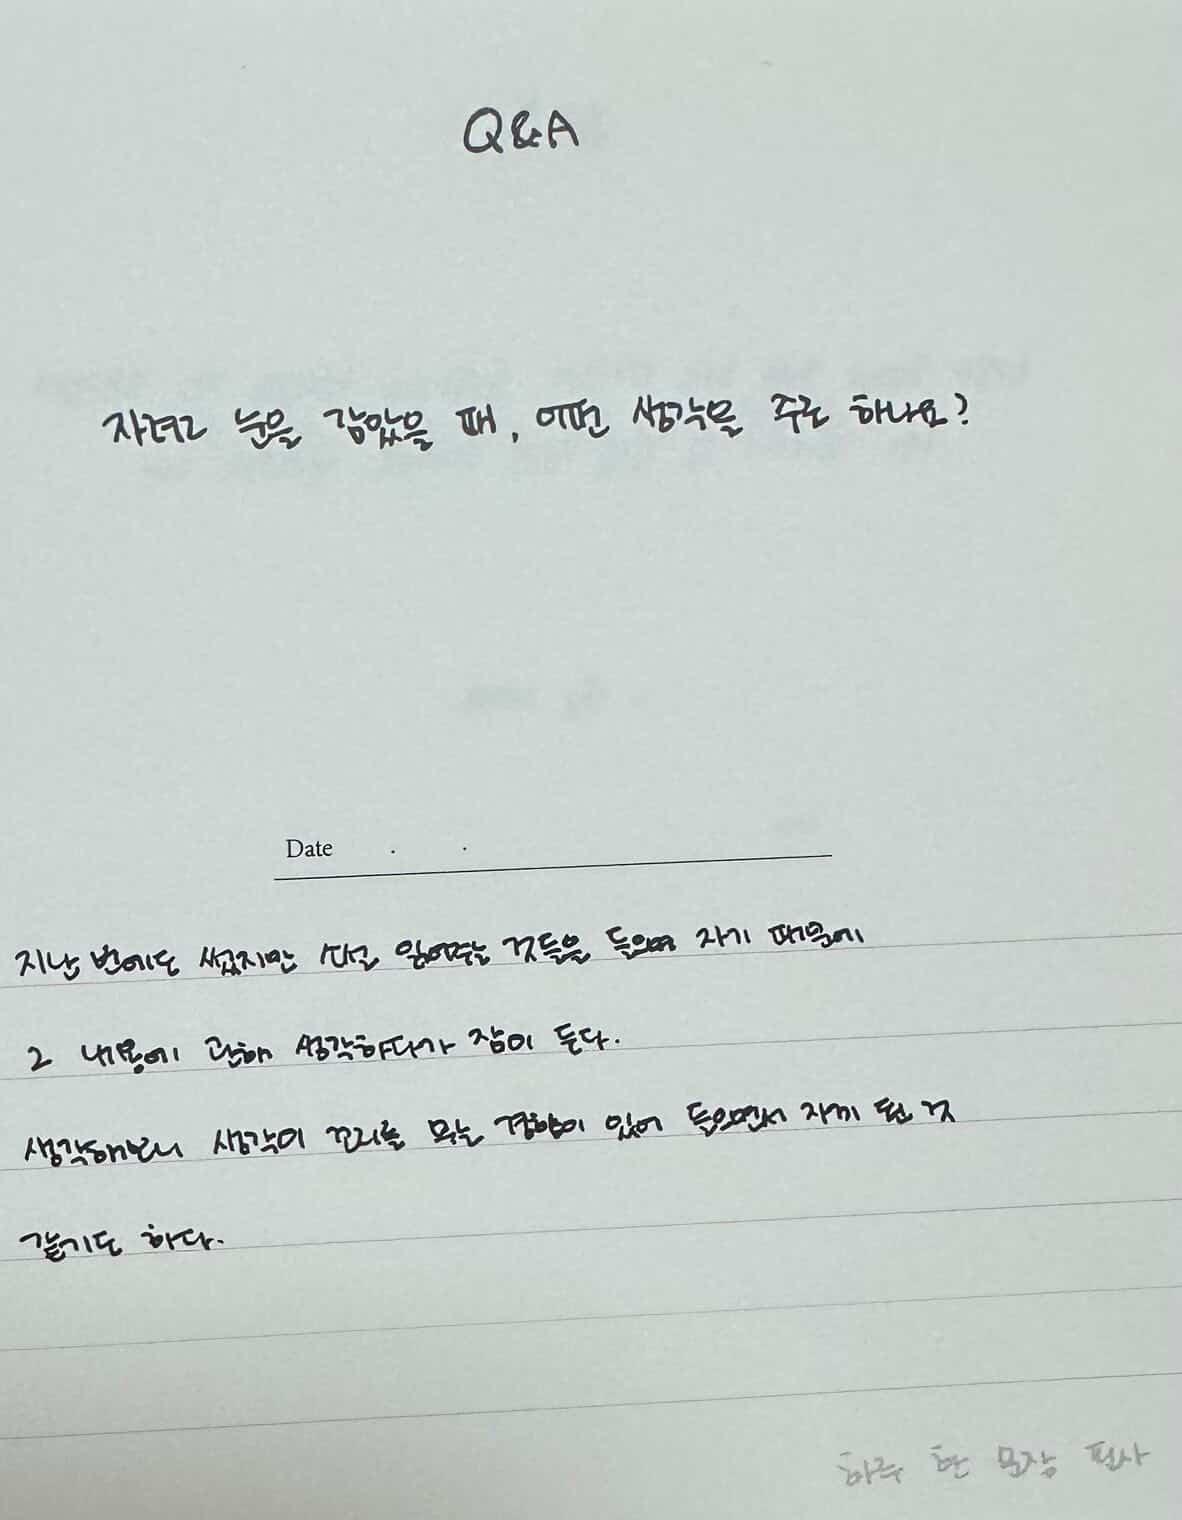 Q&A
자려고 눈을 감았을 때, 어떤 생각을 주로 하나요?
Date . .
지난 번에도 썼지만 소설 읽어주는 것들을 들으며 자기 때문에
그 내용에 관해 생각하다가 잠이 든다.
생각해보니 생각이 꼬리를 무는 경향이 있어 들으면서 자게 된 것
같기도 하다.
하루 한 문장 필사